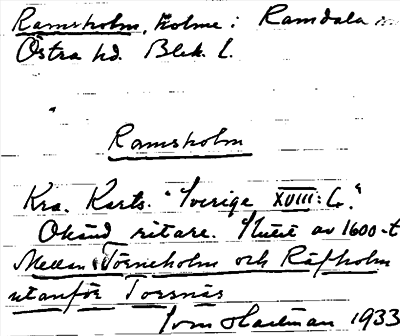 Ramsholm, holme i Ramdala sn.
Östra hd. Blek. l.
Ramsholm
Kra. Karts. "Sverige XVIII: G."
Okänd ritare. Slutet av 1600-t
Mellan Törneholm och Räfholm
utanför Torsnäs
Tom Hartman 1933